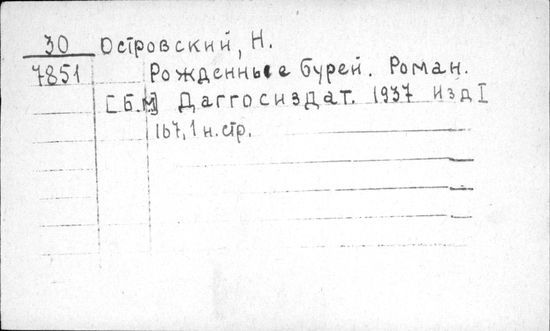 30 Островский, Н.
7851 Рожденные бурей. Роман.
[Б.м] Даггосиздат. 1937 изд I
167, 1 н. стр.